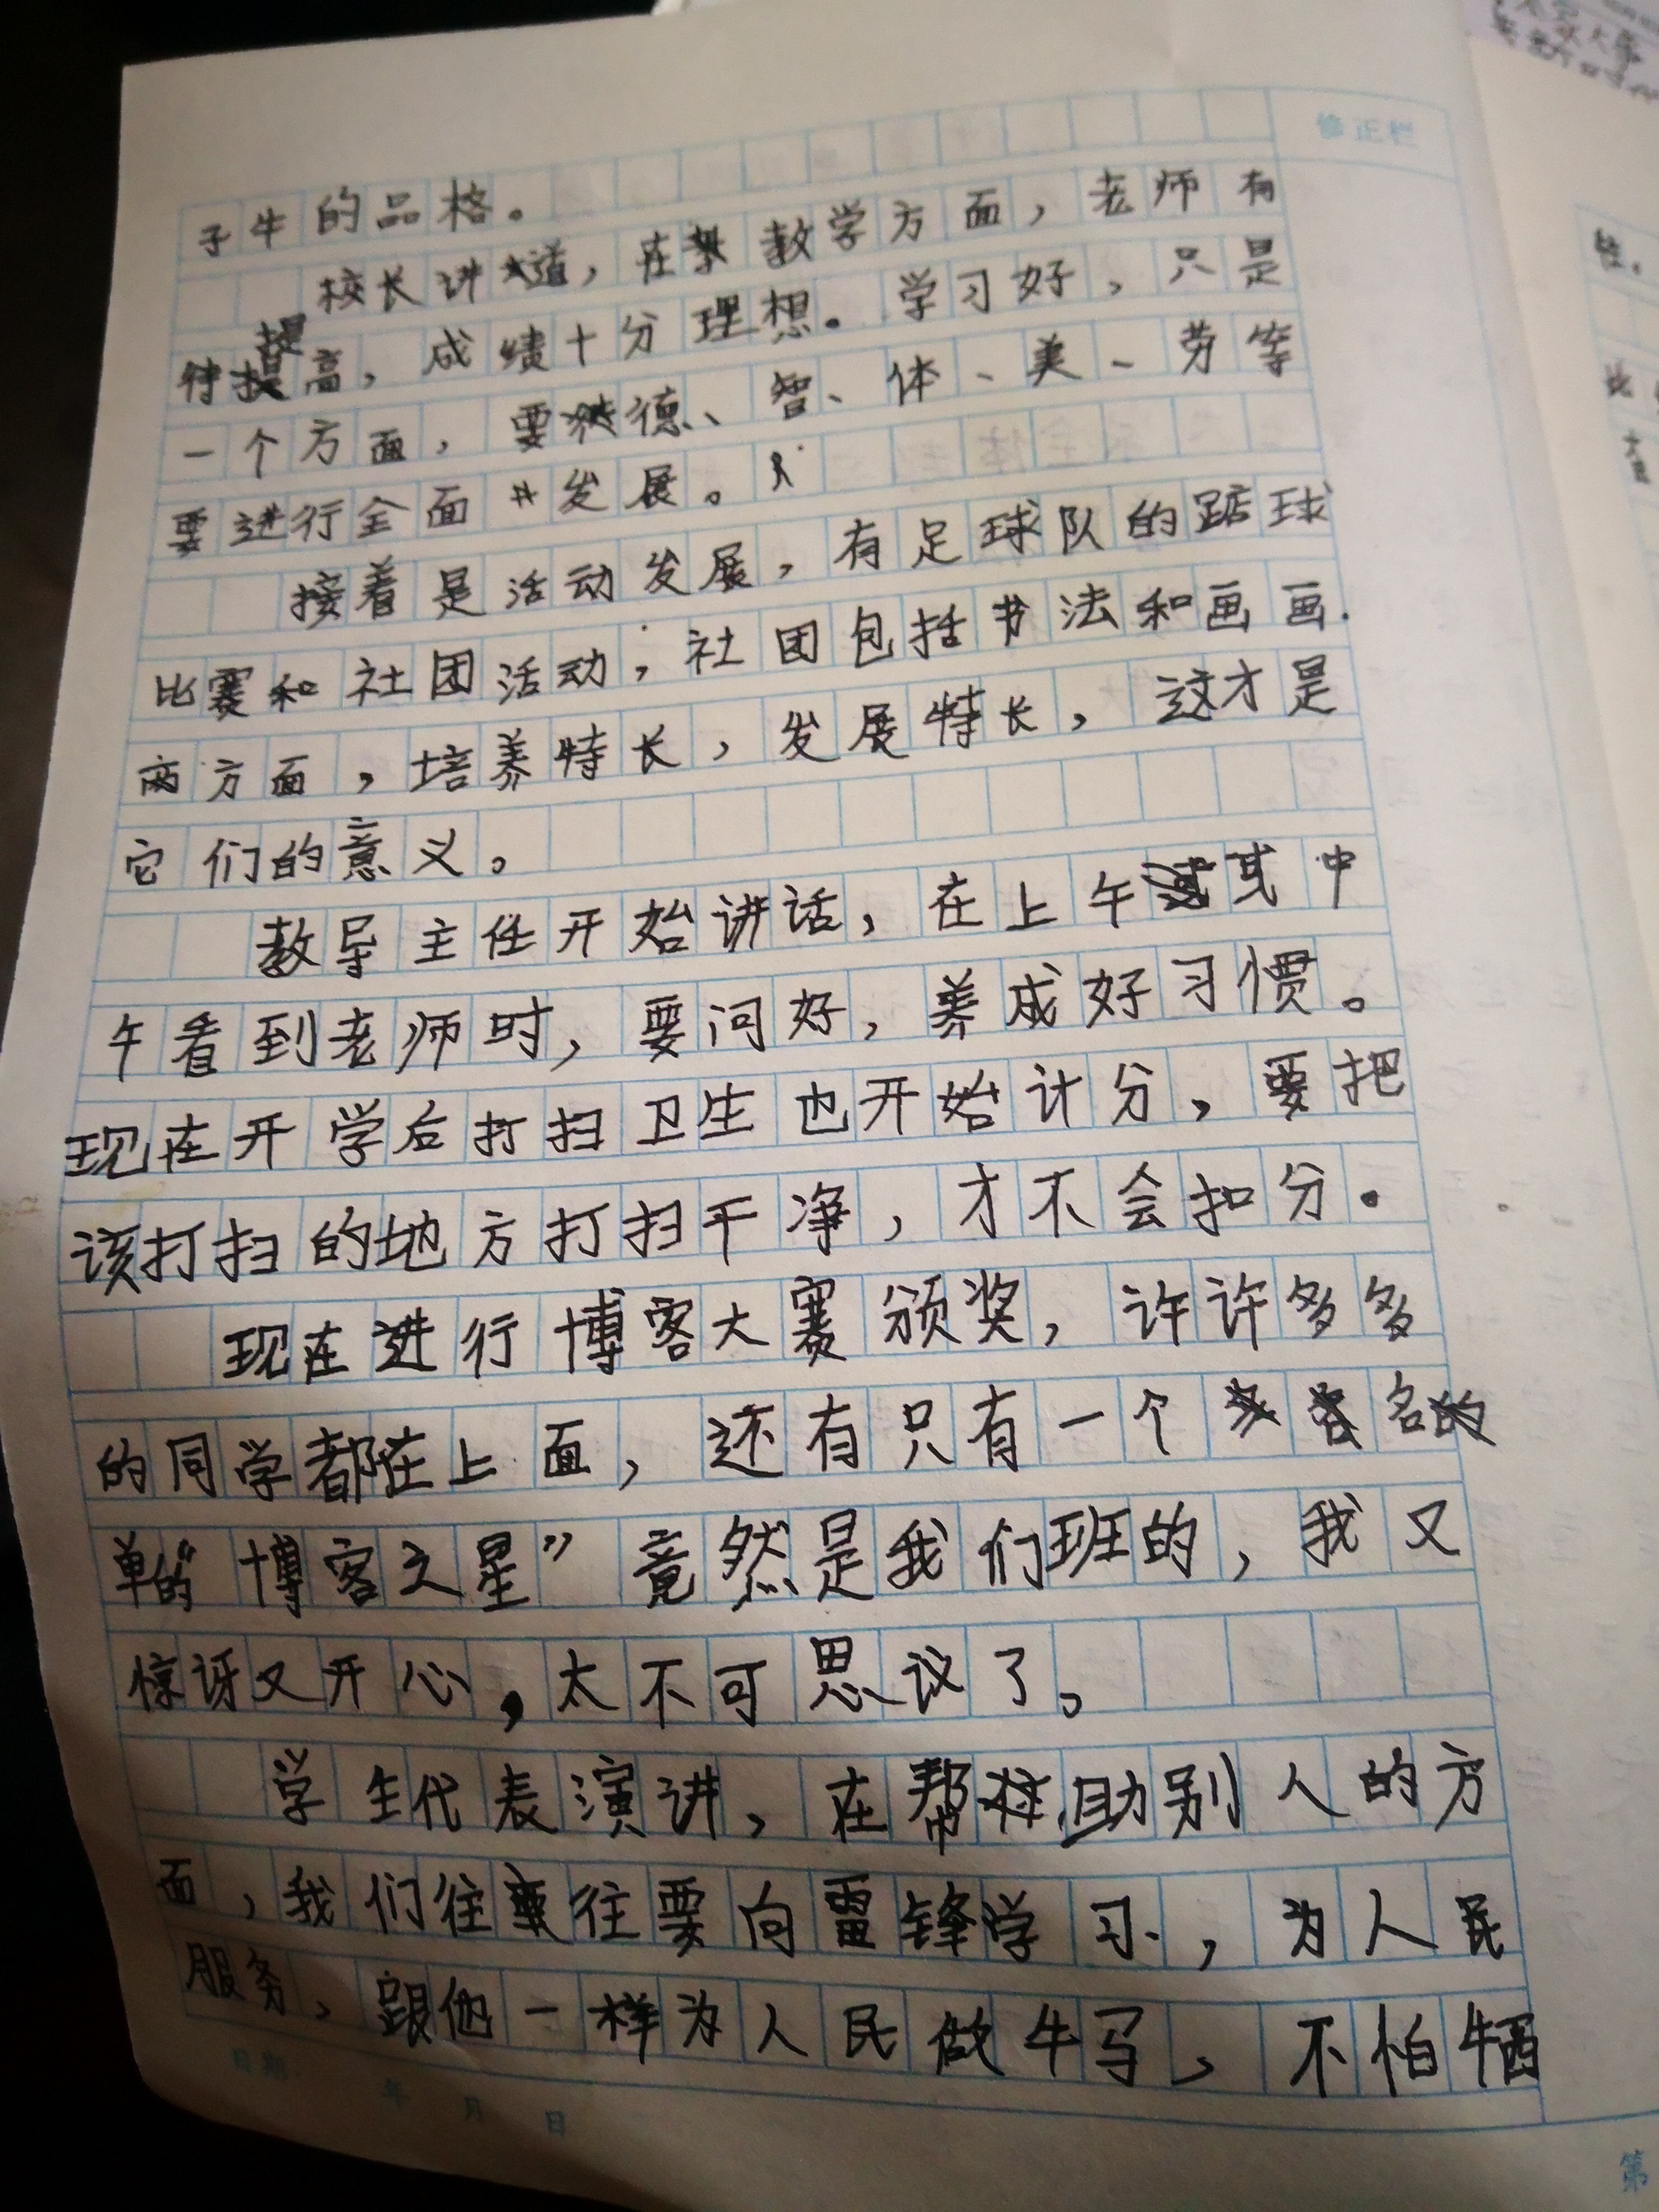 修正栏
子牛的品格。
校长讲道，在教学方面，老师有
待提高，成绩十分理想。学习好，只是
一个方面，要德、智、体、美、劳等
要进行全面发展。
接着是活动发展，有足球队的踮球
比赛和社团活动；社团包括书法和画画.
两方面，培养特长，发展特长，这才是
它们的意义。
教导主任开始讲话，在上午或中
午看到老师时，要问好，养成好习惯。
现在开学后打扫卫生也开始计分，要把
该打扫的地方打扫干净，才不会扣分.
现在进行博客大赛颁奖，许许多多
的同学都在上面，还有只有一个名
单的“博客之星”竟然是我们班的，我又
惊讶又开心，太不可思议了。
学生代表演讲，在帮助别人的方
面，我们往往要向雷锋学习，为人民
服务，跟他一样为人民做牛马，不怕牺
日期: 年 月 日
第